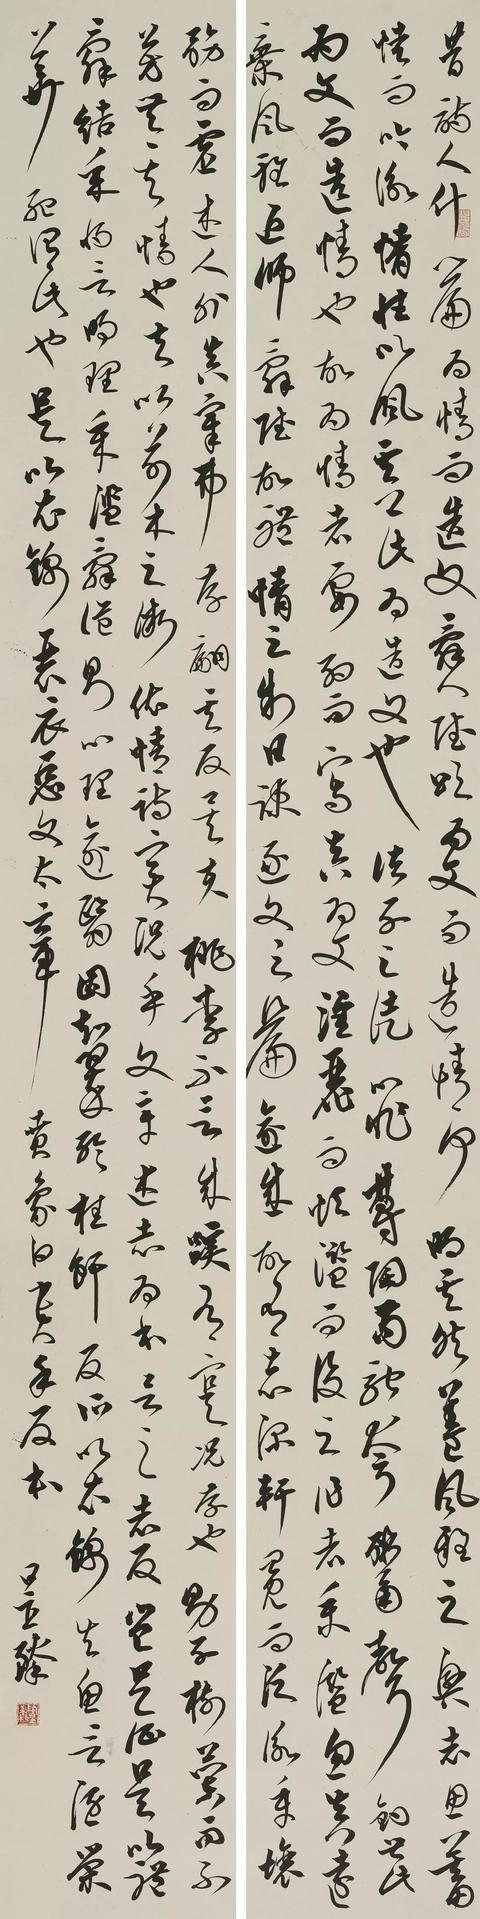 昔詩人什篇為情而造文辭人賦頌為文而造情何明其然蓋風雅之興志思蓄
憤而吟詠情性以風其上此為造文也諸子之徒心非鬱陶苟馳夸飾鬻聲釣世此
為文而造情也故為情者要約而寫真為文淫麗而煩濫而後之作者采濫忽真遠
棄風雅近師辭賦故體情之制日疎逐文之篇愈盛故有志深軒冕而汎詠皋壤
務而虛述人外真宰弗存翩其反矣夫桃李不言成蹊有實況存也男子樹蘭而不
芳無其情也夫以草木之微依情待實況乎文章述志為本言之志反豈足徵是以聯
辭結采將言明理采濫辭詭則心理愈翳固知翠綸桂餌反所以衣錦失魚言隱榮
華殆謂此也是以衣錦褧衣惡文太章賁象白貴乎反本